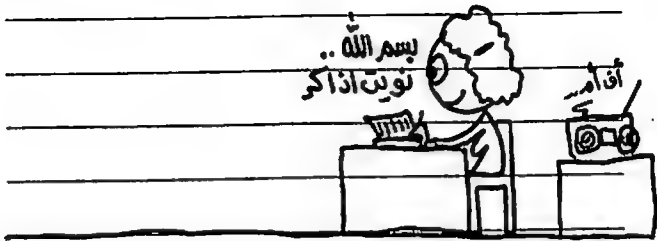 بسم الله ..
نويت اذاكر
أف أم ...